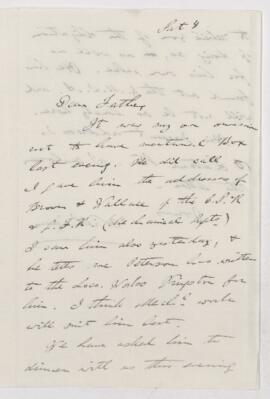 Dear Father
It was my own omission
not to have mentioned Box
last evening. He did call &
I gave him the addresses of
Brown & Vallace of the C.P.R
& G.T.R. (Mechanical Depts.)
I saw him also yesterday, &
he tells me Peterson has written
to the Loco. Works Kingston for
him. I think Mech.^l works
will suit him best.
We have asked him to
dinner with us this evening